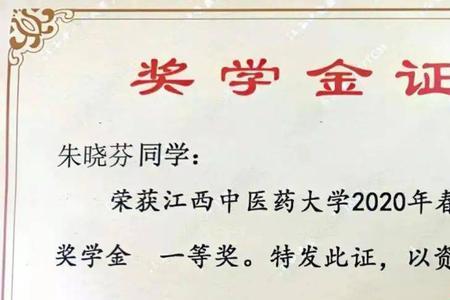 奖学金证
朱晓芬同学：
荣获江西中医药大学2020年春
奖学金 一等奖。特发此证，以资